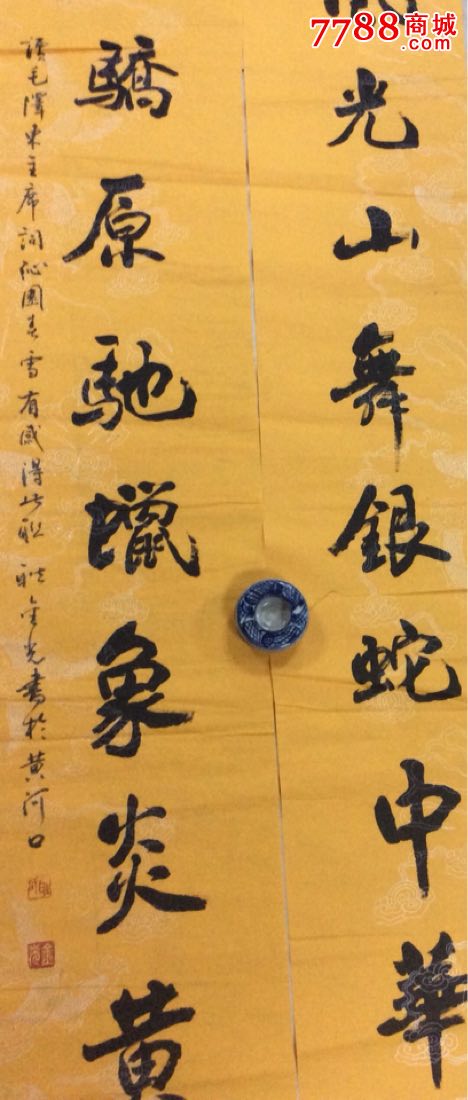 7788商城
.com
光山舞銀蛇中華
驕原馳蠟象炎黄
讀毛澤東主席詞沁園春雪有感得此联 耿金光書於黄河口